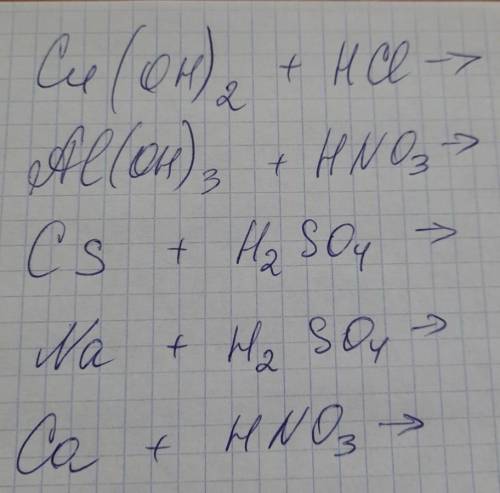 Cu(OH)₂ + HCl →
Al(OH)₃ + HNO₃ →
Cs + H₂SO₄ →
Na + H₂SO₄ →
Ca + HNO₃ →